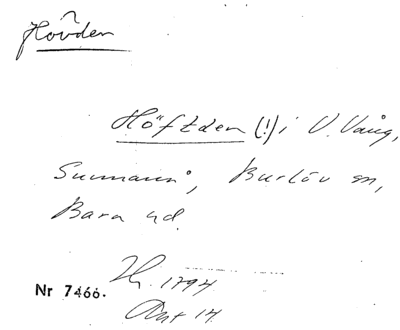 Hövden
Höftden (!) i V. Vång,
Sunnanå, Burlöv sn,
Bara hd.
Nr 7466.
1794
Akt 14.